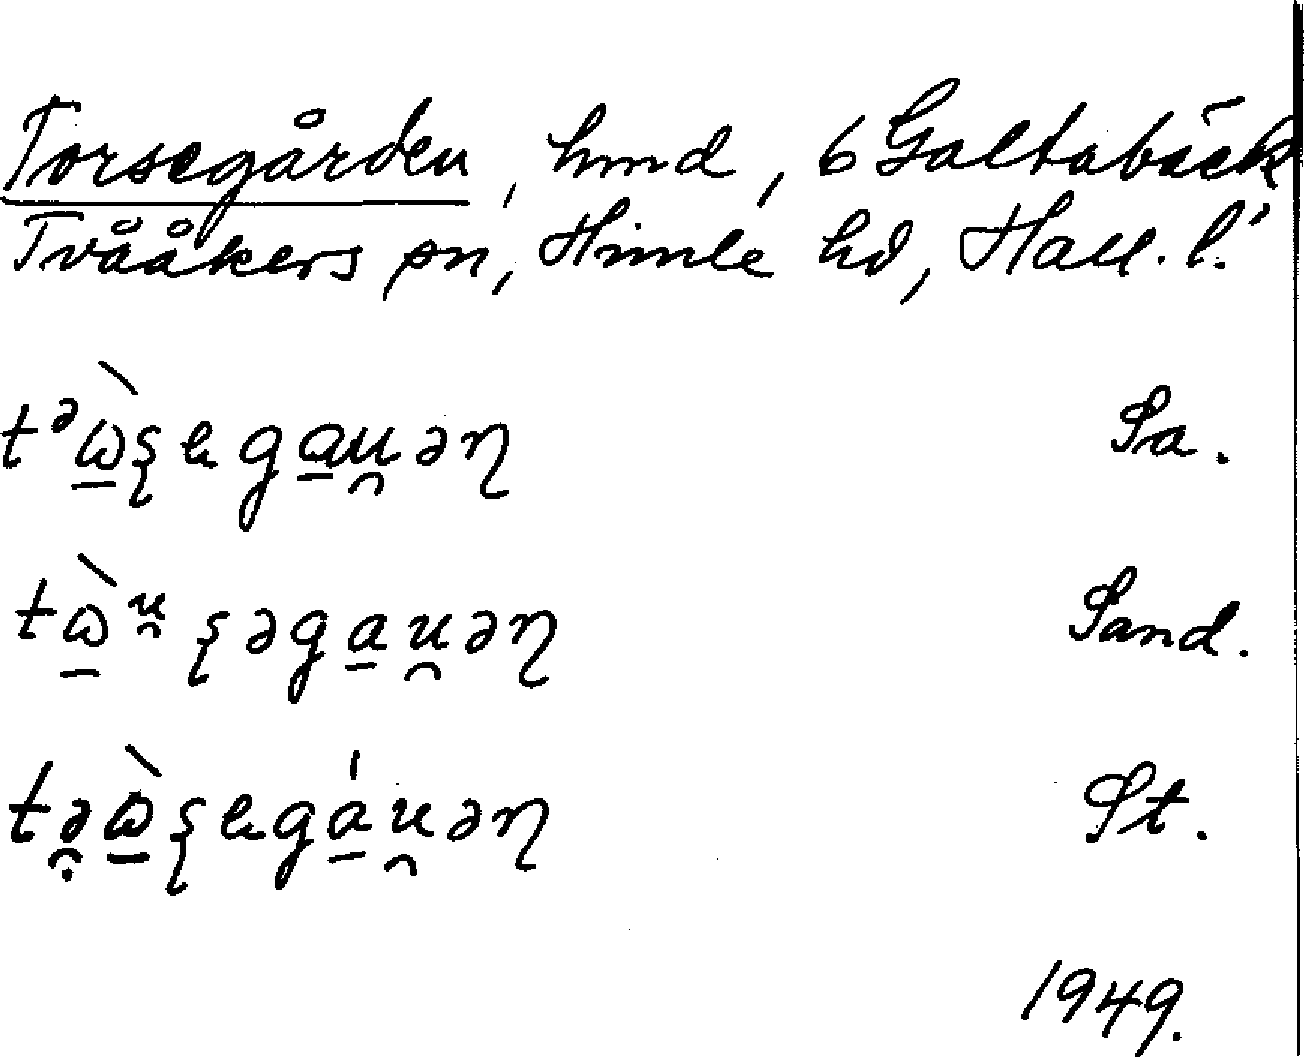 Torsegården, hmd, 6 Galtabäck
Tvååkers sn, Himle hd, Hall. l.
tᵊὼ̱ʂega̱u̯əɳ Sa.
tὼ̱ᵘ̯ʂəga̱u̯əɳ Sand.
tə̯̣ὼ̱ʂegá̱u̯əɳ St.
1949.